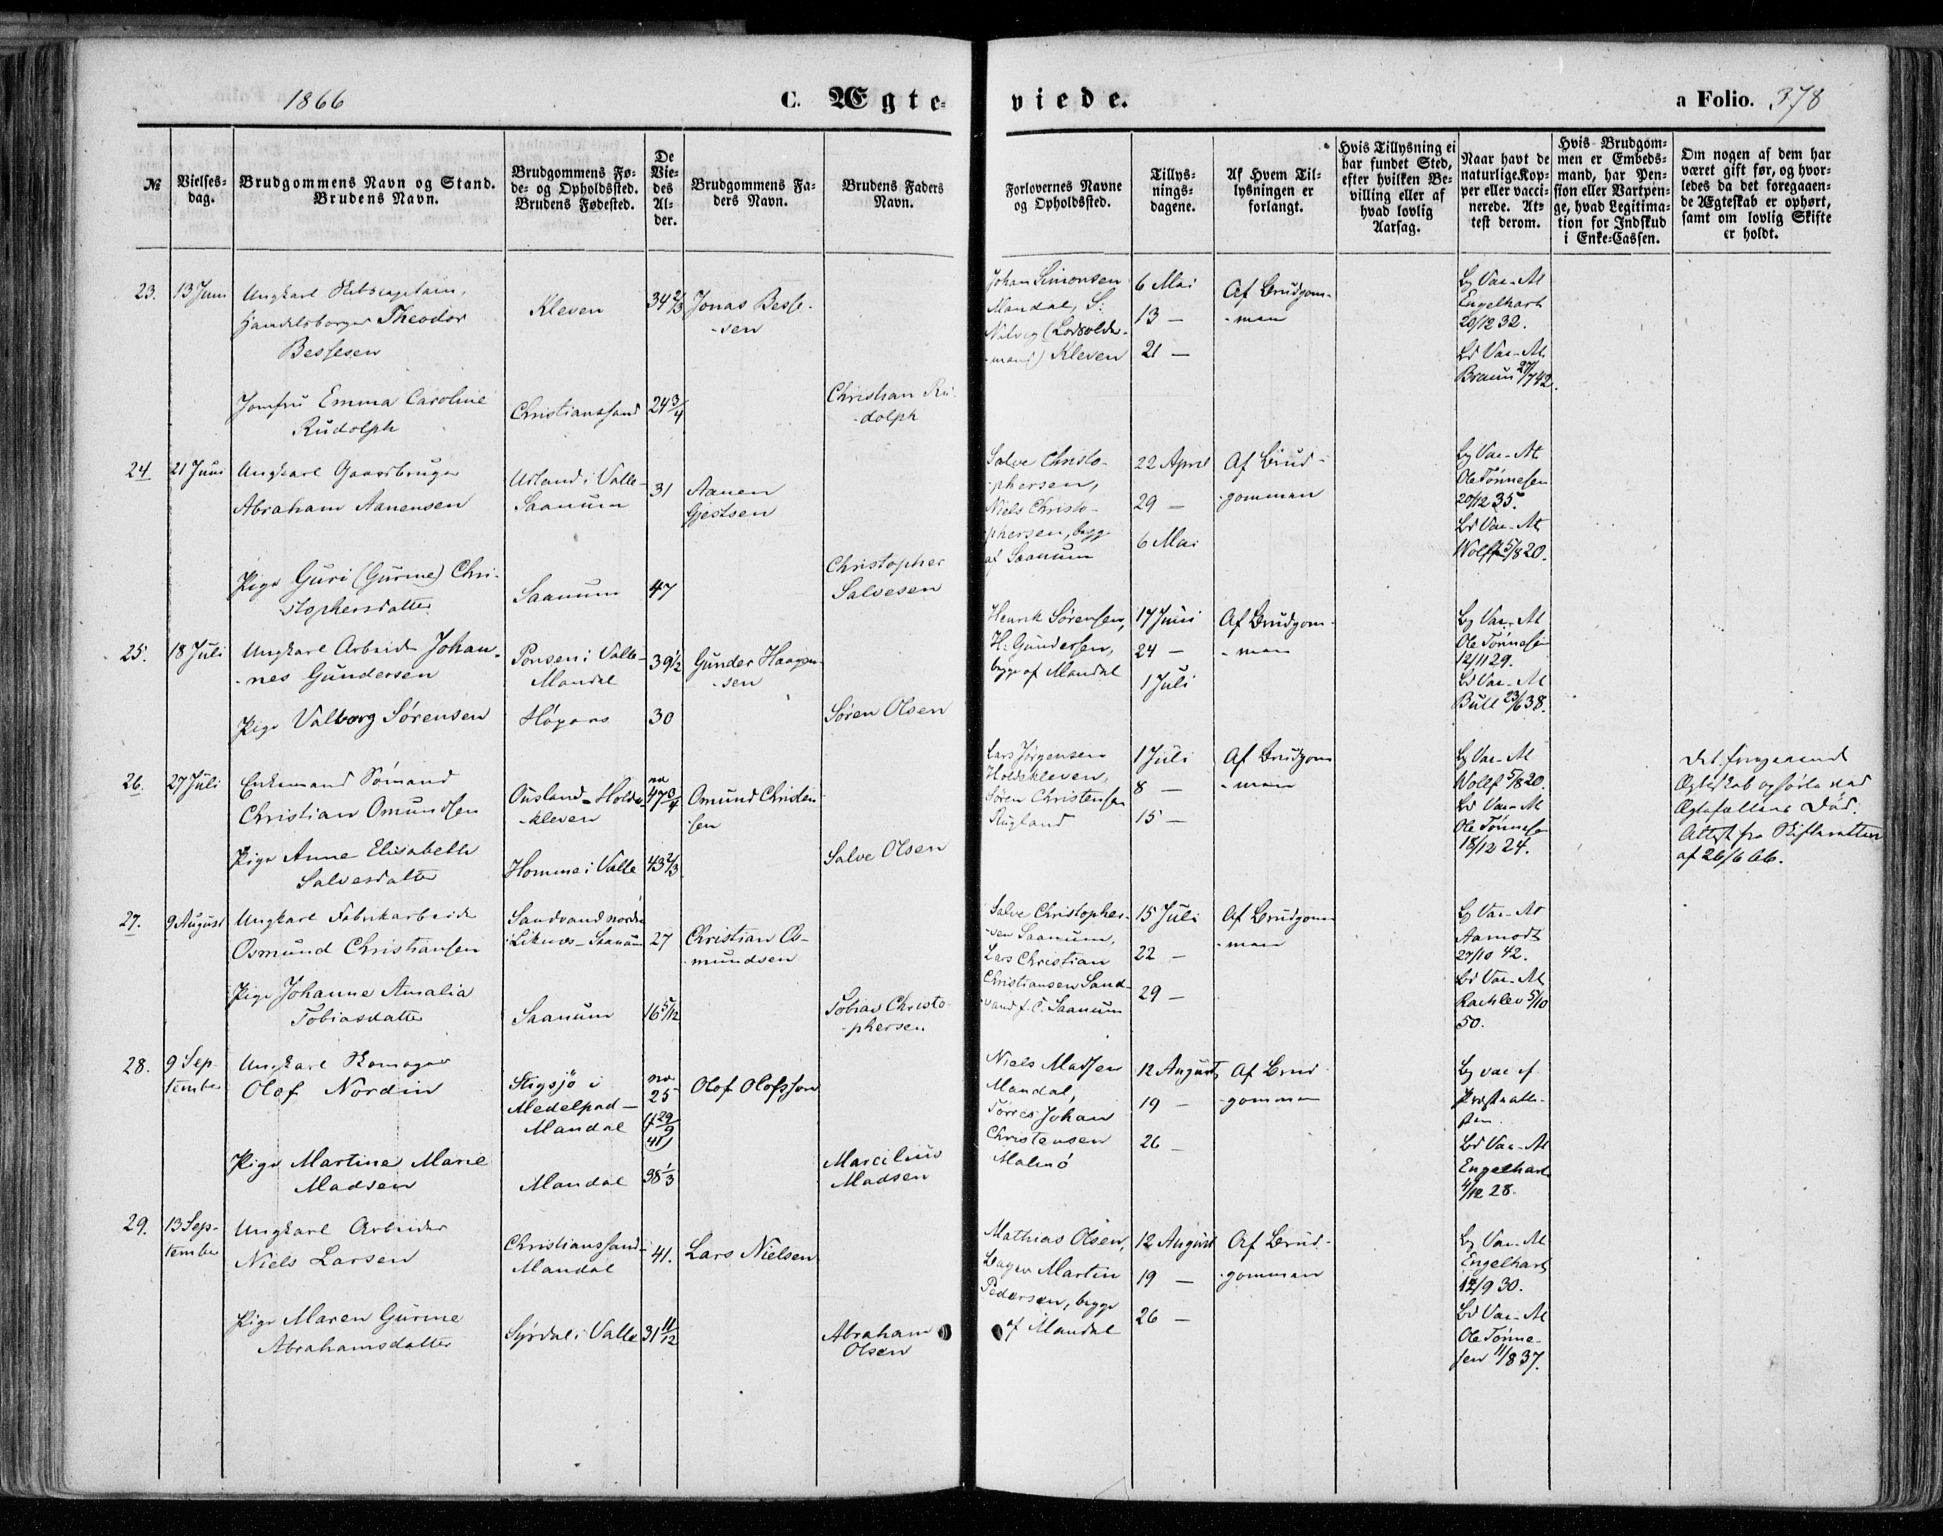 1866
C. Ægte-
viede.
a Folio. 378
№
Vielses-
dag.
Brudgommens Navn og Stand.
Brudens Navn.
Brudgommens Fø-
de- og Opholdssted.
Brudens Fødested.
De
Vie-
des
Al-
der.
Brudgommens Fa-
ders Navn.
Brudens Faders
Navn.
Forlovernes Navne
og Opholdssted.
Tillys-
nings-
dagene.
Af Hvem Til-
lysningen er
forlangt.
Hvis Tillysning ei
har fundet Sted,
efter hvilken Be-
villing eller af
hvad lovlig
Aarsag.
Naar havt de
naturlige Kop-
per eller vacci-
nerede. At-
test derom.
Hvis Brudgom-
men er Embeds-
mand, har Pen-
sion eller Vartpen-
ge, hvad Legitima-
tion for Indskud
i Enke-Cassen.
Om nogen af dem har
været gift før, og hvor-
ledes da det foregaaen-
de Ægteskab er ophørt,
samt om lovlig Skifte
er holdt.
23.
13 Juni
Ungkarl Skibscaptain,
Handelsborger Theodor
Bessesen
Kleven
34 2/3
Jonas Besse-
-sen
Johan Simonsen
Mandal, S:
(Lodsolder-
-mand) Kleven
6 Mai
13 —
21 —
Af Brudgom-
-man
Bg Vac. At
Engelhart
20/12 32.
Bd Vac. At
Braun 27/7 42.
Jomfru Emma Caroline
Rudolph
Christianssand
24 3/4
Christian Ru-
-dolph
24
21 Juni
Ungkarl Gaardbruger
Abraham Aanensen
Usland i Valle-
Saanum
31
Aanen
Gjestsen
Salve Christo-
-phersen,
Niels Christo-
phersen, begge
af Saanum
22 April
29 —
6 Mai
Af Brud-
-gomman
Bg Vac. At
Ole Tønnesen
20/12 35.
Bd Vac. At
Wolff 5/8 20.
Pige Guri (Gurine) Chri-
stophersdatter
Saanum
47
Christopher
Salvesen
25.
18 Juli
Ungkarl Arbeider Johan-
-nes Gundersen
i Valle-
Mandal
39 1/2
Gunder Haagen-
-sen
Henrik Sørensen,
H: Gundersen,
begge af Mandal
17 Juni
24 —
1 Juli
Af Brudgom-
-man
Bg Vac. At
Ole Tønnesen
12/11 29.
Bd Vac. At
Bull 23/6 38.
Pige Valborg Sørensen
30
Søren Olsen
26.
27 Juli
Enkemand Sømand
Christian Omundsen
Ousland - Holde-
-kleven
47 3/4
Omund Christen-
-sen
Lars Jørgensen
Holdekleven,
Søren Christensen
Rugland
1 Juli
8 —
15 —
Af Brudgom-
-man
Bg Vac. At
Wolff 5/8 20.
Bd Vac. At
Ole Tønnesen
18/12 24.
Det foregaaende
Ægteskab ophørte ved
Ægtefællens Død.
Attest fra Skifteretten
af 26/6 66.
Pige Anne Elisabeth
Salvesdatter
Homme i Valle
43 2/3
Salve Olsen
27.
9 August
Ungkarl Fabrikarbeider
Osmund Christiansen
Sandvand nordre
i Liknes - Saanum
27
Christian Os-
-mundsen
Salve Christopher-
-sen Saanum,
Lars Christian
Christiansen Sand-
vand f. C. Saanum
15 Juli
22 —
29 —
Af Brudgom-
-man
Bg Vac. At
Aamodt
27/10 42.
Bd Vac. At
5/10
50.
Pige Johanne Amalia
Tobiasdatter
Saanum
16 5/12
Tobias Christo-
-phersen
28.
9 Sep-
tember
Ungkarl
Olof Nordin
Stigsjö i
Medelpad -
Mandal
25
(29/9
41)
Olof Olofsson
Niels Madsen
Mandal,
Tørres Johan
Christensen
Malmö
12 August
19 —
26 —
Af Brud-
-gomman
Bg vac ef
Præstatte-
sten.
Bd Vac. At
Engelhart
4/12 28.
Pige Martine Marie
Madsen
Mandal
38 1/3
Marcilius
Madsen
29.
13 Sep-
tember
Ungkarl Arbeider
Niels Larsen
Christianssand-
Mandal
41.
Lars Nielsen
Mathias Olsen,
Martin
Pedersen, begge
af Mandal
12 August
19 —
26 —
Af Brud-
-gomman
Bg Vac. At
Engelhart
12/9 30.
Bd Vac. At
Ole Tønne-
sen 11/8 37.
Pige Maren Gurine
Abrahamsdatter
Syrdal i Valle
31 11/12
Abraham
Olsen